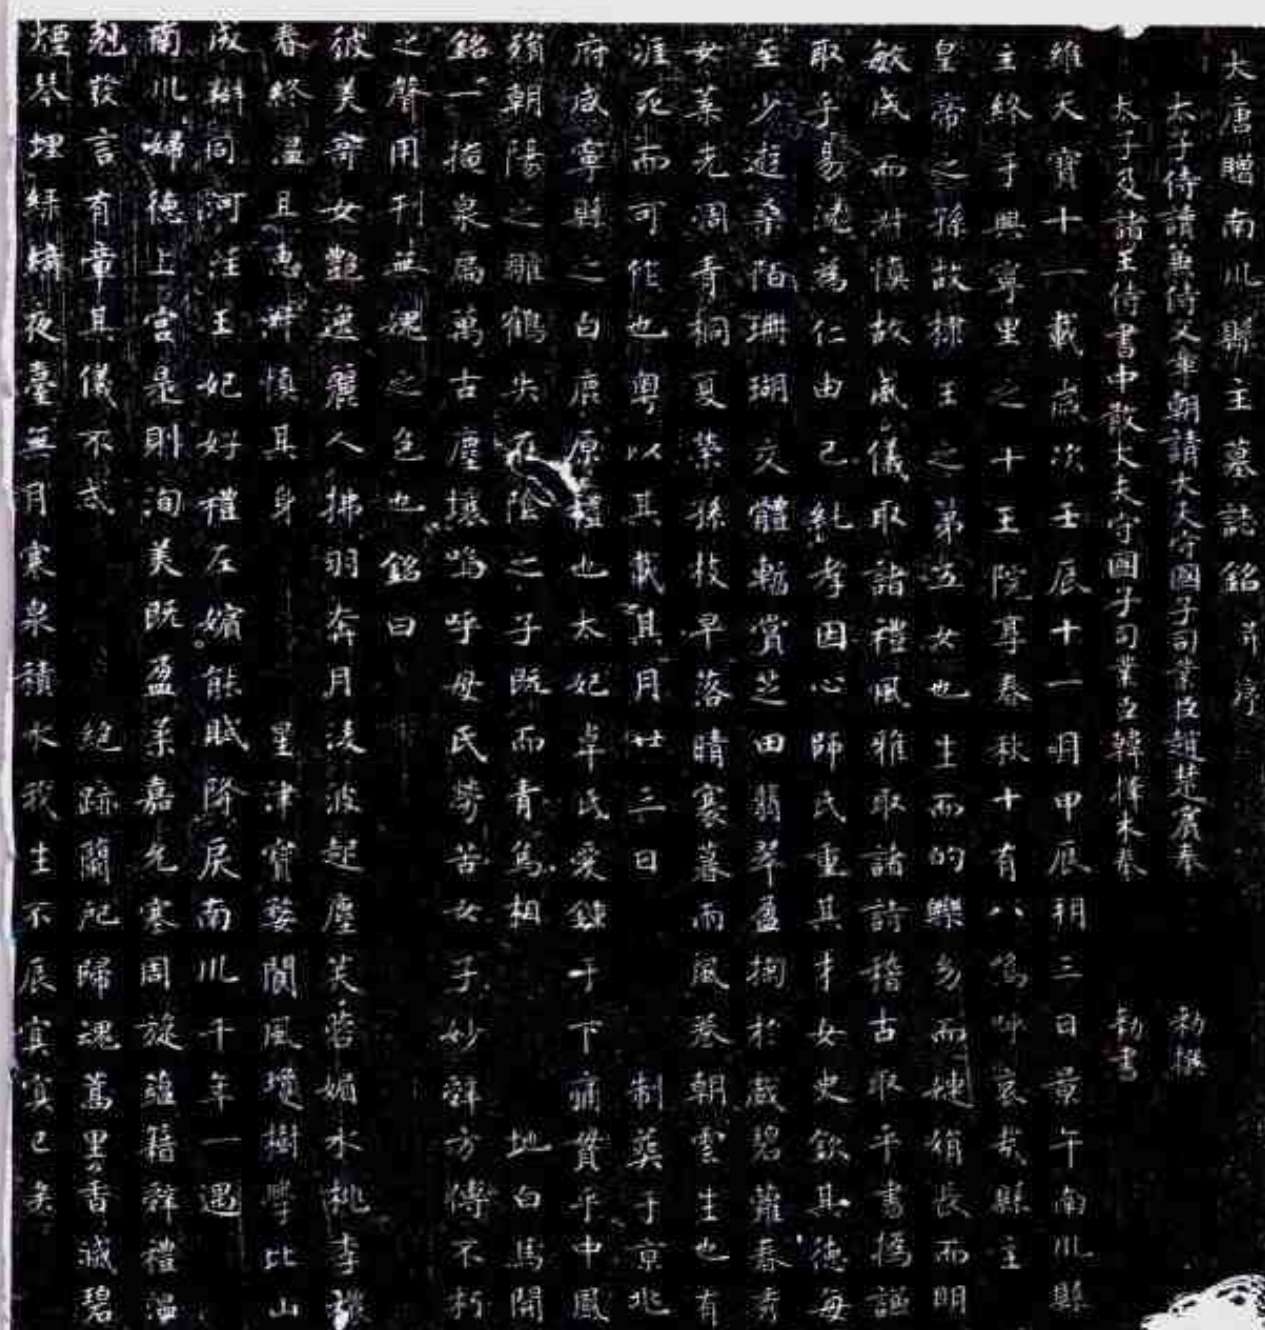 大唐贈南川縣主墓誌銘并序
太子侍讀兼侍文章朝請大夫守國子司業臣趙楚賓奉 勅撰
太子及諸王侍書中散大夫守國子司業臣韓擇木奉 勅書
維天寶十一載歲次壬辰十一月甲辰朔三日景午南川縣
主終于興寧里之十王院享春秋十有八嗚呼哀哉縣主
皇帝之孫故棣王之第五女也生而的皪多而婕娟長而明
敏成而淋慎故威儀取諸禮風雅取諸詩稽古取乎書撝謙
取乎易逮為仁由己純孝因心師氏重其才女史欽其德每
至少遊桑陌珊瑚交體暫賞芝田翡翠盈掬於戲碧蘿春秀
女葉先凋青桐夏榮孫枝早落晴褰暮而風卷朝雲生也有
涯死而可作也粵以其載其月廿三日 制葬于京兆
府咸寧縣之白鹿原禮也太妃卓氏愛鍾于下痛貫乎中鳳
殞朝陽之雛鶴失在陰之子既而青烏相 地白馬開
銘一掩泉扃萬古塵壤嗚呼母氏勞苦女子妙辭方傳不朽
之聲用刊無媿之色也銘曰
彼美奇女艷逸麗人拂羽奔月淩波起塵芙蓉媚水桃李穠
春終溫且惠淋慎其身 星津寶婺閬風瓊樹學比山
成辯同河注王妃好禮左嬪能賦降戾南川千年一遇
南川婦德上宮是則洵美既盈柔嘉允塞周旋蘊籍辭禮溫
剋發言有章其儀不忒 絕跡蘭阤歸魂蒿里香滅碧
煙琴埋綠綺夜臺無月寒泉積水我生不辰冥冥已矣